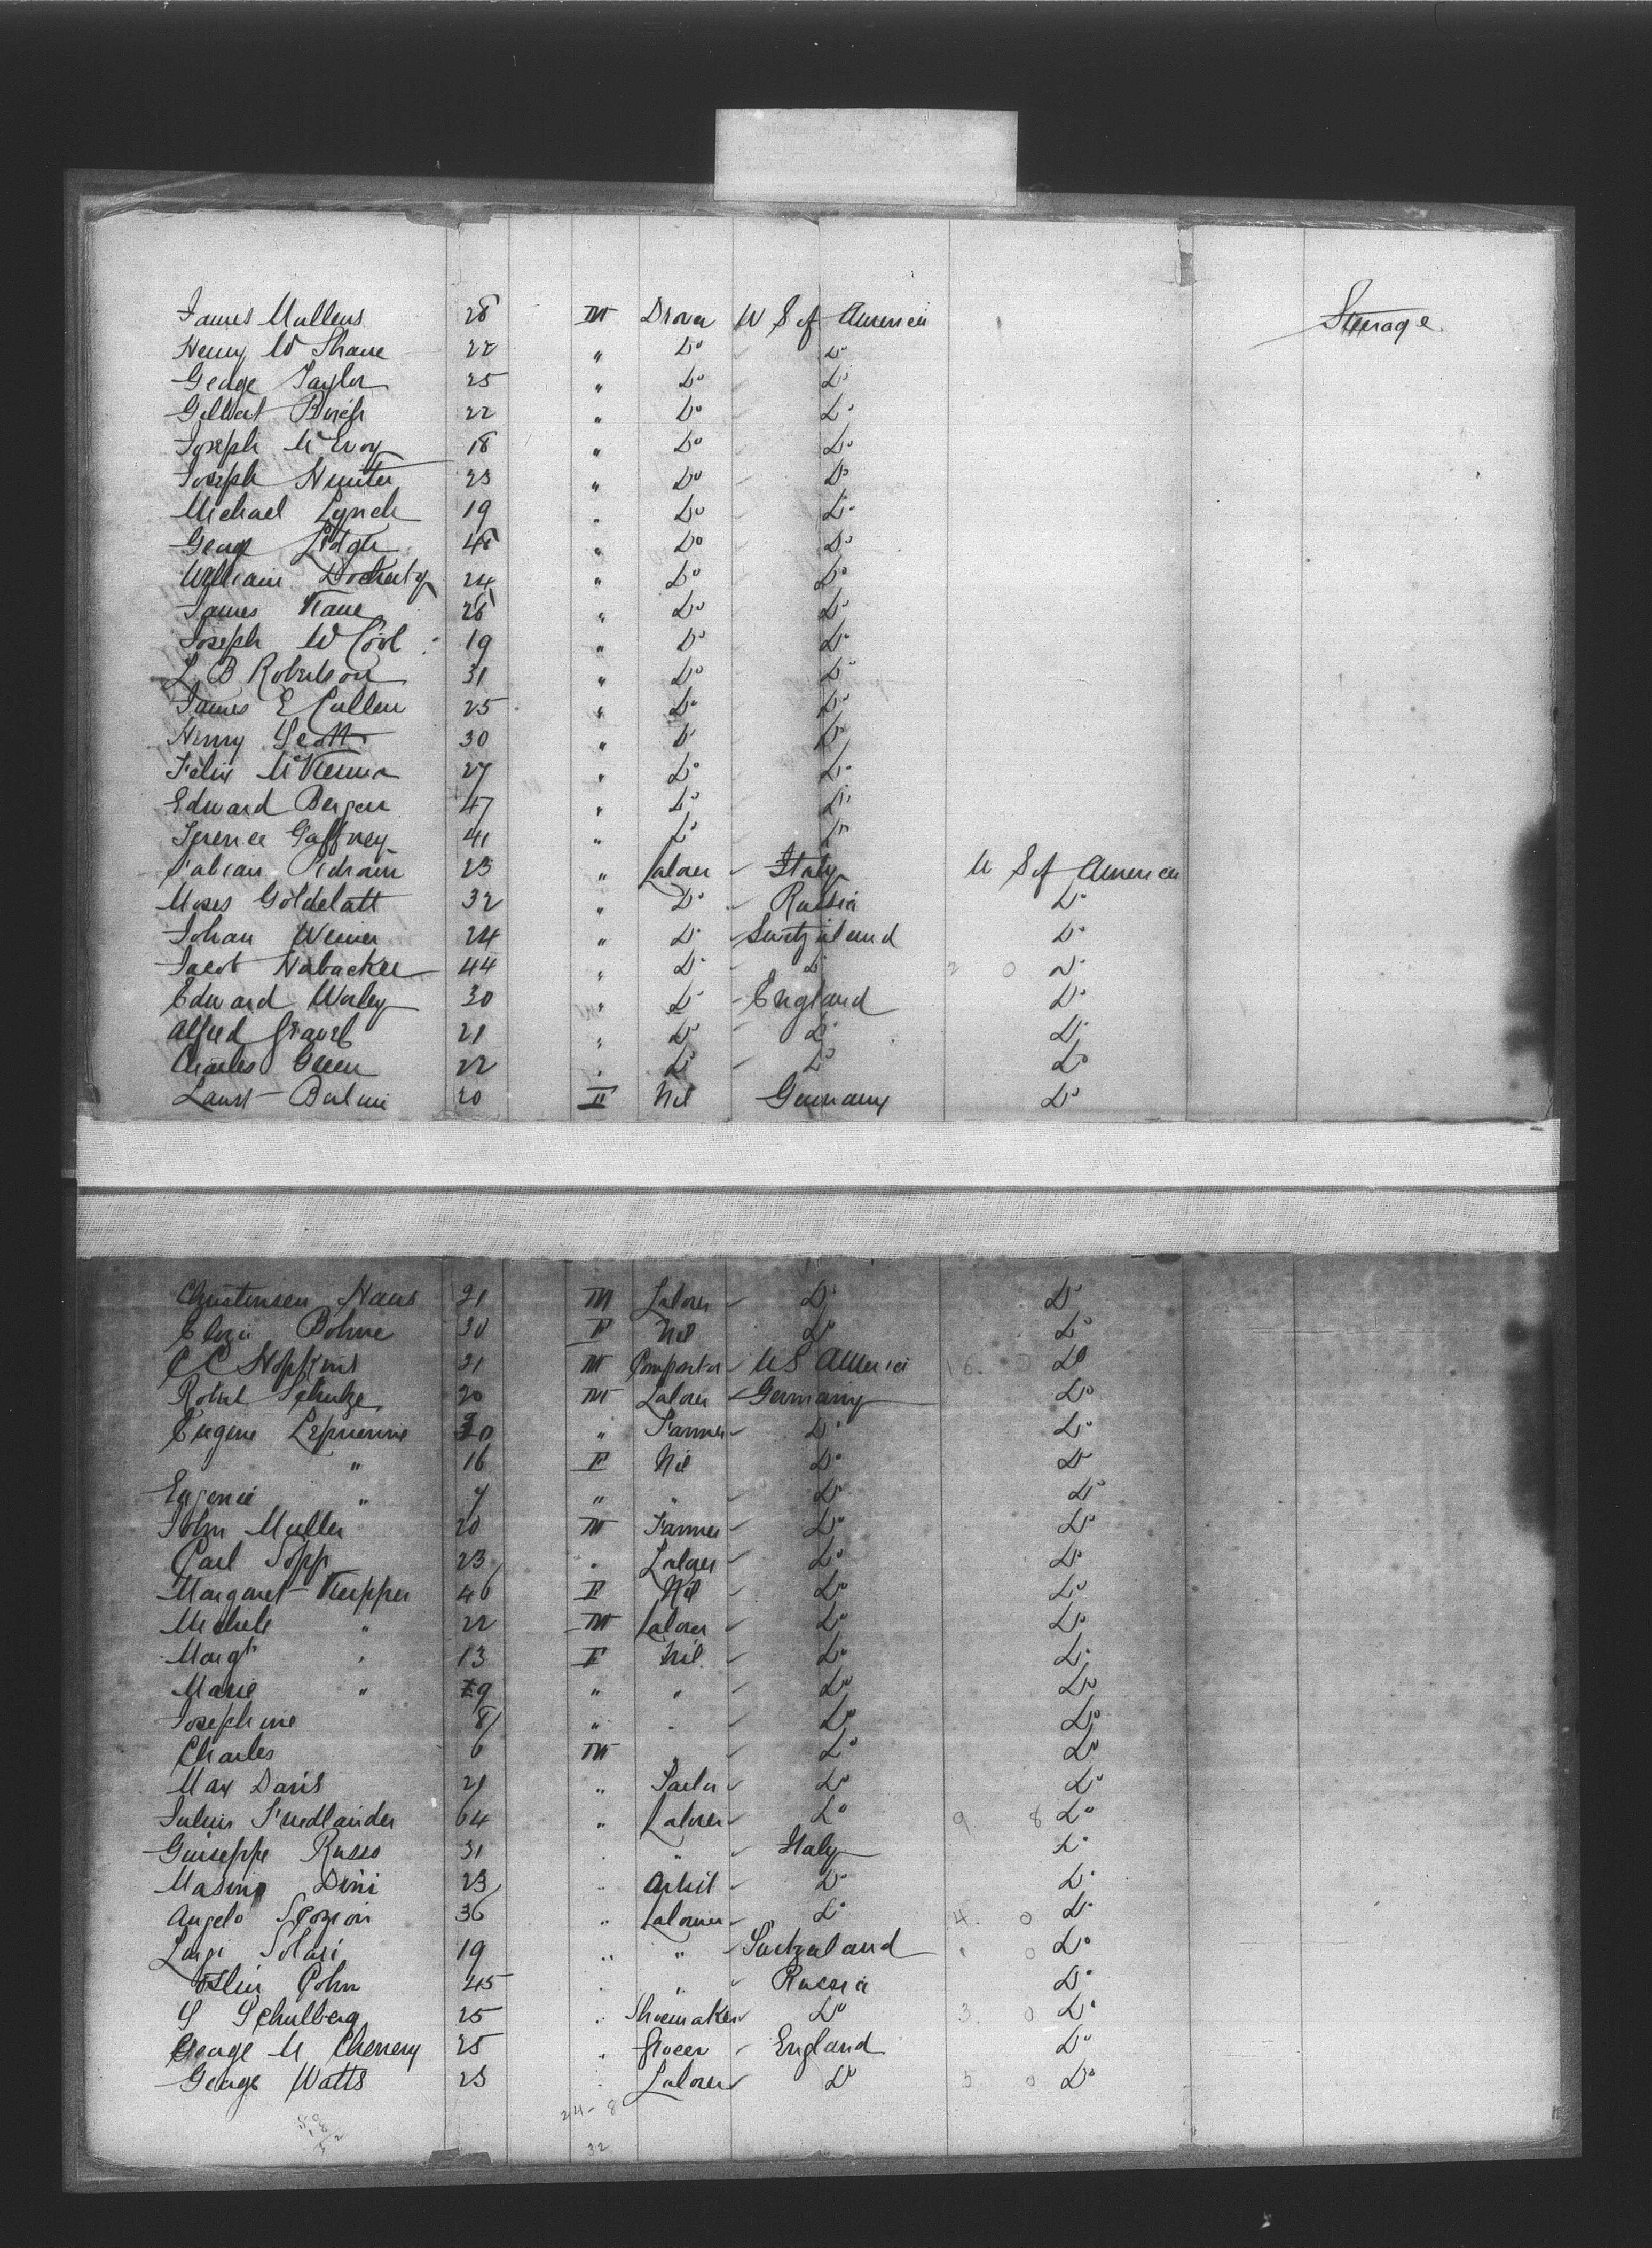 James Mullens 28 M Drover U S of America Steerage
Henry W Shane 22 " Do Do
George Taylor 25 " Do Do
Gilbert Birch 22 " Do Do
Joseph McEvoy 18 " Do Do
Joseph Hunter 23 " Do Do
Michael Lynch 19 " Do Do
George 48 " Do Do
William Docherty 24 " Do Do
James Kane 28 " Do Do
Joseph W Cool 19 " Do Do
L B Robertson 31 " Do Do
James E Cullen 25 " Do Do
Henry Scott 30 " Do Do
Felix McKenna 27 " Do Do
Edward Bergen 47 " Do Do
Terence Gaffney 41 " Do Do
Fabian 23 " Laborer Italy U S of America
Moses Goldblatt 32 " Do Russia Do
Johan Werner 24 " Do Switzerland Do
Jacob Habacker 44 " Do Do 2 0 Do
Edward Worley 30 " Do England Do
Alfred 21 " Do Do Do
Charles Green 22 " Do Do Do
20 F Nil Germany Do
Christensen Hans 21 M Laborer Do Do
Bohne 30 F Nil Do Do
C C Hopkins 21 M Compositor U S America 16. 0 Do
Robert Schulze 20 M Laborer Germany Do
Eugene 30 " Farmer Do Do
" 16 F Nil Do Do
Eugenie " 7 " " Do Do
John Muller 20 M Farmer Do Do
Carl Sopp 23 " Laborer Do Do
Margaret Kupper 46 F Nil Do Do
Michele " 22 M Laborer Do Do
Margt " 13 F Nil Do Do
Marie " 9 " " Do Do
Josephine 8 " " Do Do
Charles 6 M " Do Do
Max Davis 21 " Do Do
Julius Friedlander 64 " Laborer Do 9. 8 Do
Guiseppe Russo 31 " " Italy Do
Masimo Dini 23 " Do Do
Angelo 36 " Laborer Do 4. 0 Do
Luigi Solari 19 " " Switzerland 1 0 Do
Cohn 45 " " Russia Do
S Schulberg 25 " Shoemaker Do 3. 0 Do
George M Chenery 25 " Grocer England Do
George Watts 23 " Laborer Do 5 0 Do
24 - 8
32